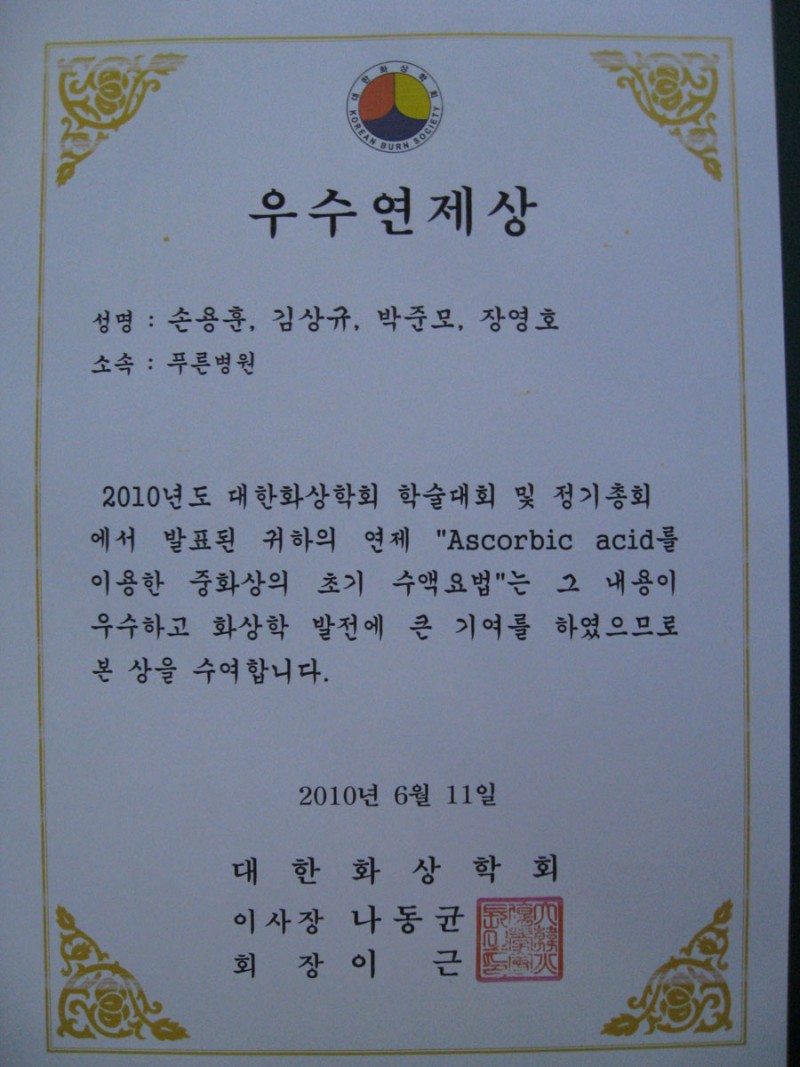 대한화상학회
KOREAN BURN SOCIETY
우수연제상
성명 : 손용훈, 김상규, 박준모, 장영호
소속 : 푸른병원
2010년도 대한화상학회 학술대회 및 정기총회
에서 발표된 귀하의 연제 "Ascorbic acid를
이용한 중화상의 초기 수액요법"는 그 내용이
우수하고 화상학 발전에 큰 기여를 하였으므로
본 상을 수여합니다.
2010년 6월 11일
대 한 화 상 학 회
이사장 나동균
회 장 이 근